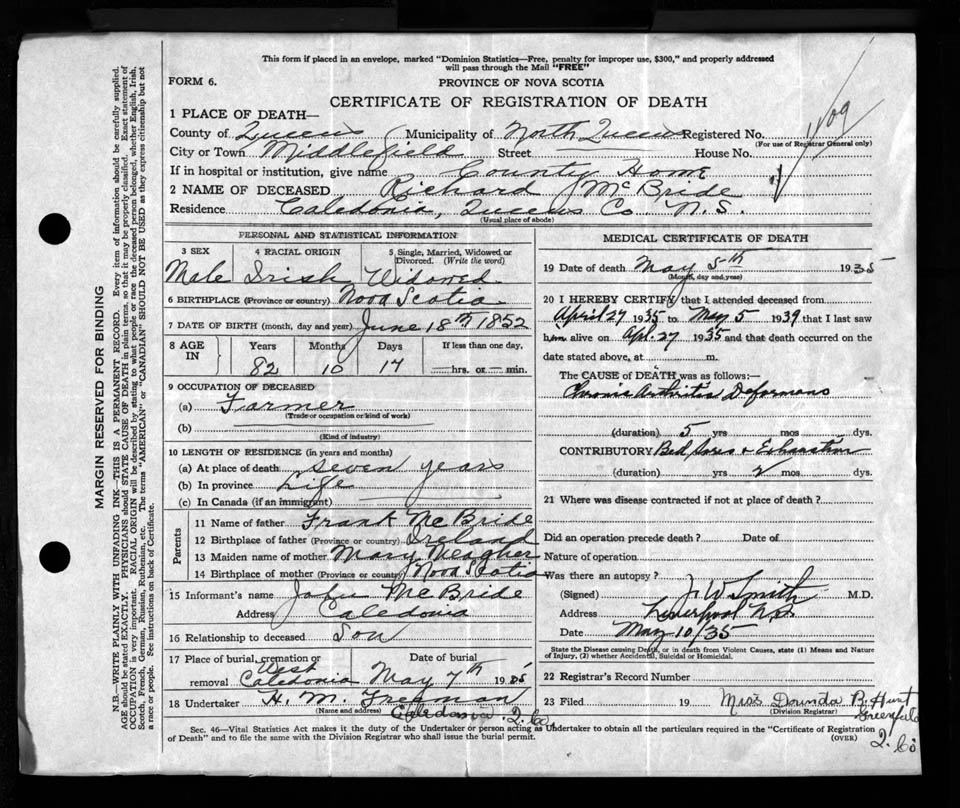 This form if placed in an envelope, marked "Dominion Statistics—Free, penalty for improper use, $300," and properly addressed
will pass through the Mail "FREE"
FORM 6.
PROVINCE OF NOVA SCOTIA
CERTIFICATE OF REGISTRATION OF DEATH
1 PLACE OF DEATH—
County of Queens Municipality of North Queens Registered No.
(For use of Registrar General only)
City or Town Middlefield Street House No.
If in hospital or institution, give name County Home
2 NAME OF DECEASED Richard McBride
Residence Caledonia, Queens Co. N.S.
(Usual place of abode)
PERSONAL AND STATISTICAL INFORMATION
3 SEX 4 RACIAL ORIGIN 5 Single, Married, Widowed or
Divorced. (Write the word)
Male Irish Widowed
6 BIRTHPLACE (Province or country) Nova Scotia
7 DATE OF BIRTH (month, day and year) June 18th 1852
8 AGE IN Years Months Days If less than one day,
82 10 17 hrs. or min.
9 OCCUPATION OF DECEASED
(a) Farmer
(Trade or occupation or kind of work)
(b)
(Kind of industry)
10 LENGTH OF RESIDENCE (in years and months)
(a) At place of death seven years
(b) In province Life
(c) In Canada (if an immigrant)
Parents
11 Name of father Frank McBride
12 Birthplace of father (Province or country) Ireland
13 Maiden name of mother Mary Meagher
14 Birthplace of mother (Province or country) Nova Scotia
15 Informant's name John McBride
Address Caledonia
16 Relationship to deceased Son
17 Place of burial, cremation or Date of burial
removal West Caledonia May 7th 1935
18 Undertaker H. M. Freeman
(Name and address) Caledonia, Q. Co.
MEDICAL CERTIFICATE OF DEATH
19 Date of death May 5th 1935
(Month, day and year)
20 I HEREBY CERTIFY that I attended deceased from
April 27 1935 to May 5 1939 that I last saw
him alive on Apl. 27 1935 and that death occurred on the
date stated above, at m.
The CAUSE of DEATH was as follows:
Chronic Arthritis Deformans
(duration) 5 yrs mos dys.
CONTRIBUTORY Bed Sores + Exhaustion
(duration) yrs 2 mos dys.
21 Where was disease contracted if not at place of death?
Did an operation precede death? Date of
Nature of operation
Was there an autopsy?
(Signed) J. W. Smith M.D.
Address Liverpool N.S.
Date May 10/35
State the Disease causing Death, or in death from Violent Causes, state (1) Means and Nature
of Injury, (2) whether Accidental, Suicidal or Homicidal.
22 Registrar's Record Number
23 Filed 19 Miss B. Hunt
(Division Registrar) Greenfield
Q. Co.
Sec. 46—Vital Statistics Act makes it the duty of the Undertaker or person acting as Undertaker to obtain all the particulars required in the "Certificate of Registration
of Death" and to file the same with the Division Registrar who shall issue the burial permit. (OVER)
MARGIN RESERVED FOR BINDING
N.B.—WRITE PLAINLY WITH UNFADING INK—THIS IS A PERMANENT RECORD. Every item of information should be carefully supplied.
AGE should be stated EXACTLY. PHYSICIANS should STATE CAUSE OF DEATH in plain terms, so that it may be properly classified. Exact statement of
OCCUPATION is very important. RACIAL ORIGIN will be described by stating to what people or race the deceased person belonged, whether English, Irish,
Scotch, French, German, Russian, Ruthenian, etc. The terms "AMERICAN" or "CANADIAN" SHOULD NOT BE USED as they express citizenship but not
a race or people. See instructions on back of Certificate.